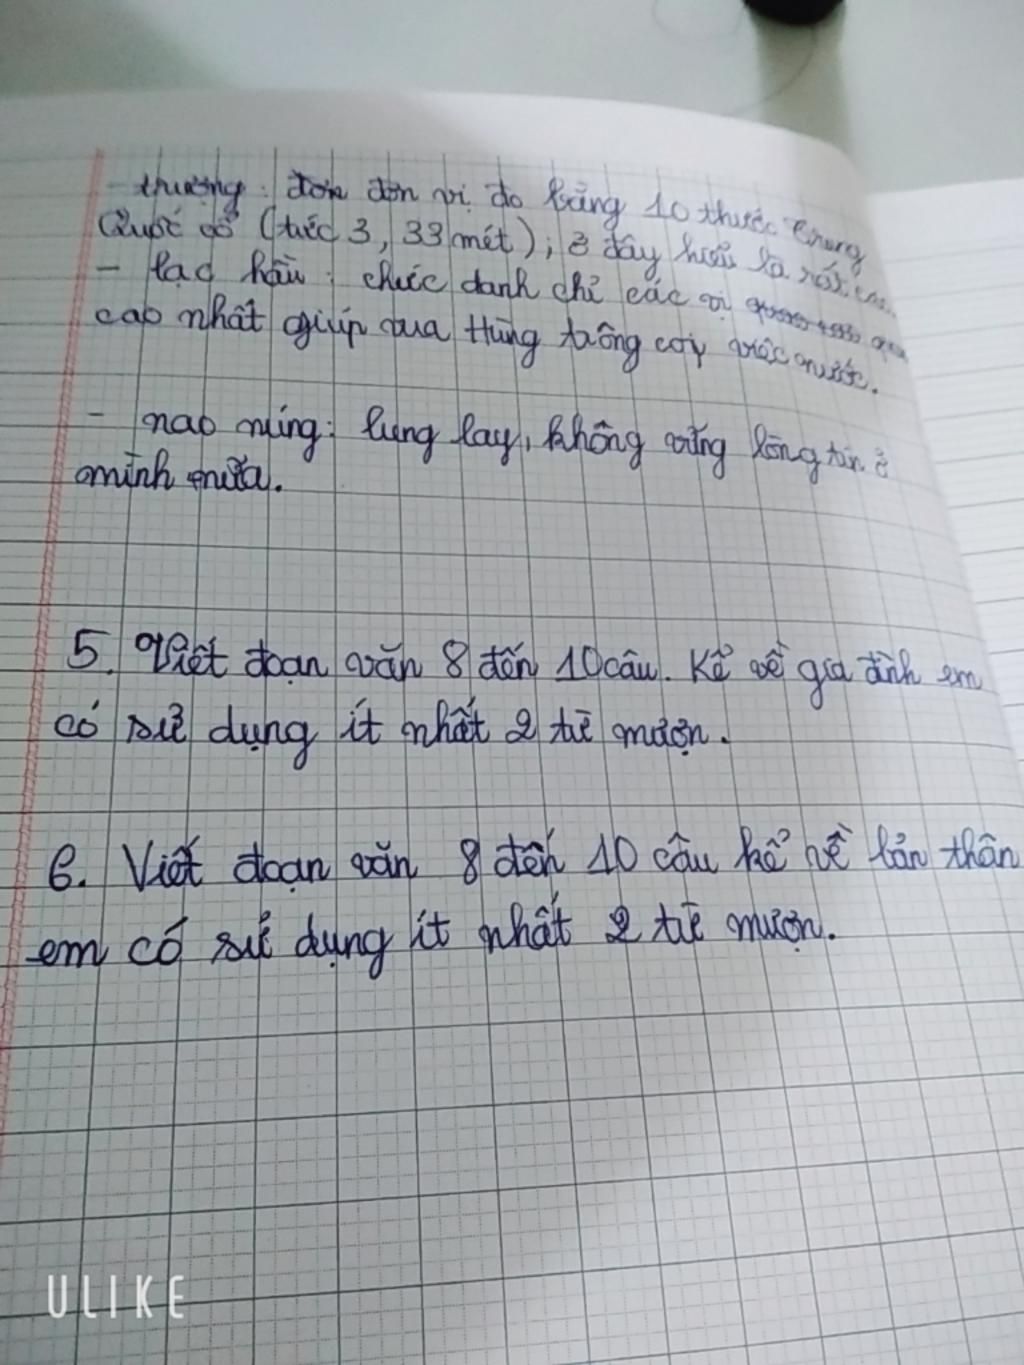 - trượng: đơn vị đo bằng 10 thước Trung
Quốc cổ (tức 3,33 mét); ở đây hiểu là rất
- lạc hầu: chức danh chỉ các vị
cao nhất giúp vua Hùng trông coi việc nước.
- nao núng: lung lay, không vững lòng tin ở
mình nữa.
5. Viết đoạn văn 8 đến 10 câu. Kể về gia đình em
có sử dụng ít nhất 2 từ mượn.
6. Viết đoạn văn 8 đến 10 câu kể về bản thân
em có sử dụng ít nhất 2 từ mượn.
ULIKE